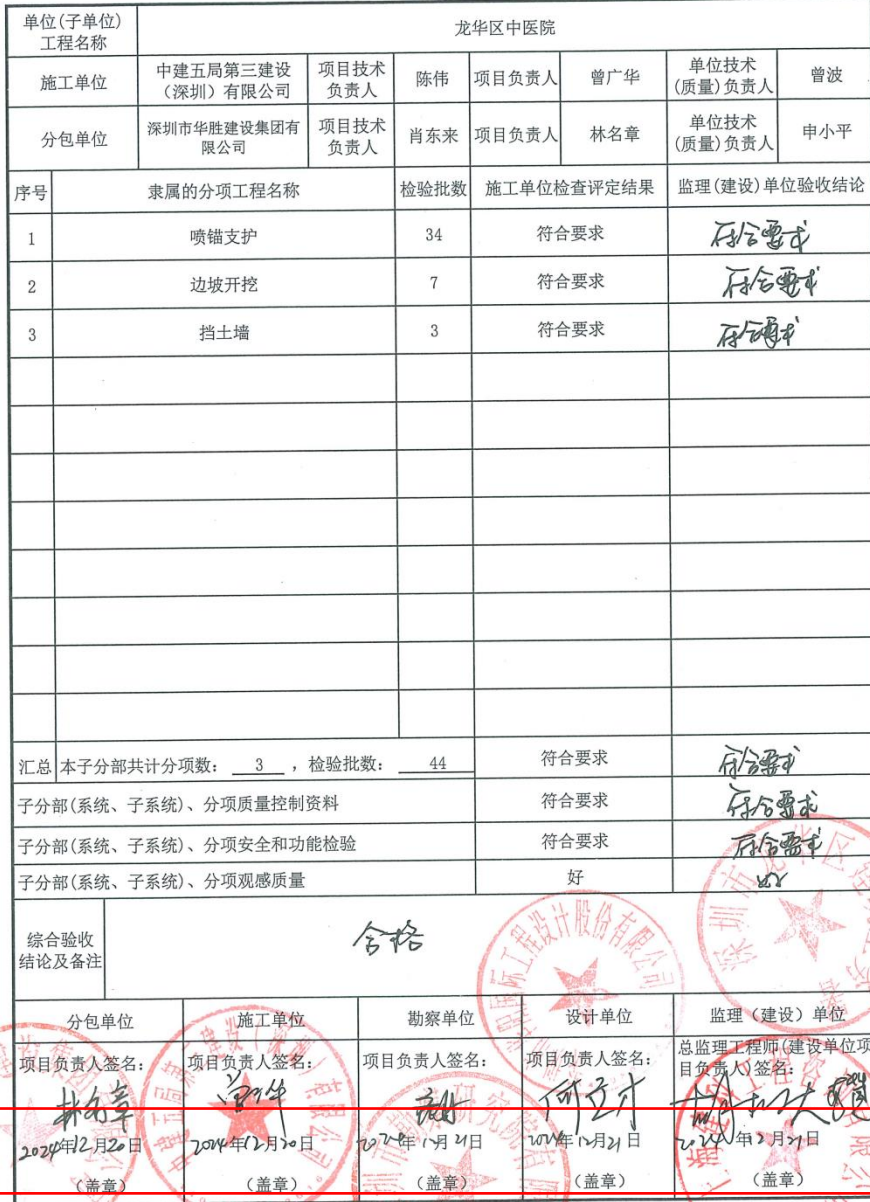 单位(子单位)
工程名称
龙华区中医院
施工单位
中建五局第三建设
(深圳)有限公司
项目技术
负责人
陈伟
项目负责人
曾广华
单位技术
(质量)负责人
曾波
分包单位
深圳市华胜建设集团有
限公司
项目技术
负责人
肖东来
项目负责人
林名章
单位技术
(质量)负责人
申小平
序号 隶属的分项工程名称 检验批数 施工单位检查评定结果 监理(建设)单位验收结论
1 喷锚支护 34 符合要求 符合要求
2 边坡开挖 7 符合要求 符合要求
3 挡土墙 3 符合要求 符合要求
汇总 本子分部共计分项数: 3 ,检验批数: 44 符合要求 符合要求
子分部(系统、子系统)、分项质量控制资料 符合要求 符合要求
子分部(系统、子系统)、分项安全和功能检验 符合要求 符合要求
子分部(系统、子系统)、分项观感质量 好 好
综合验收
结论及备注
合格
分包单位 施工单位 勘察单位 设计单位 监理(建设)单位
项目负责人签名: 项目负责人签名: 项目负责人签名: 项目负责人签名: 总监理工程师(建设单位项
目负责人)签名:
林名章
2024年12月20日 2024年12月20日 2024年12月21日 2024年12月21日 2024年12月21日
(盖章) (盖章) (盖章) (盖章) (盖章)